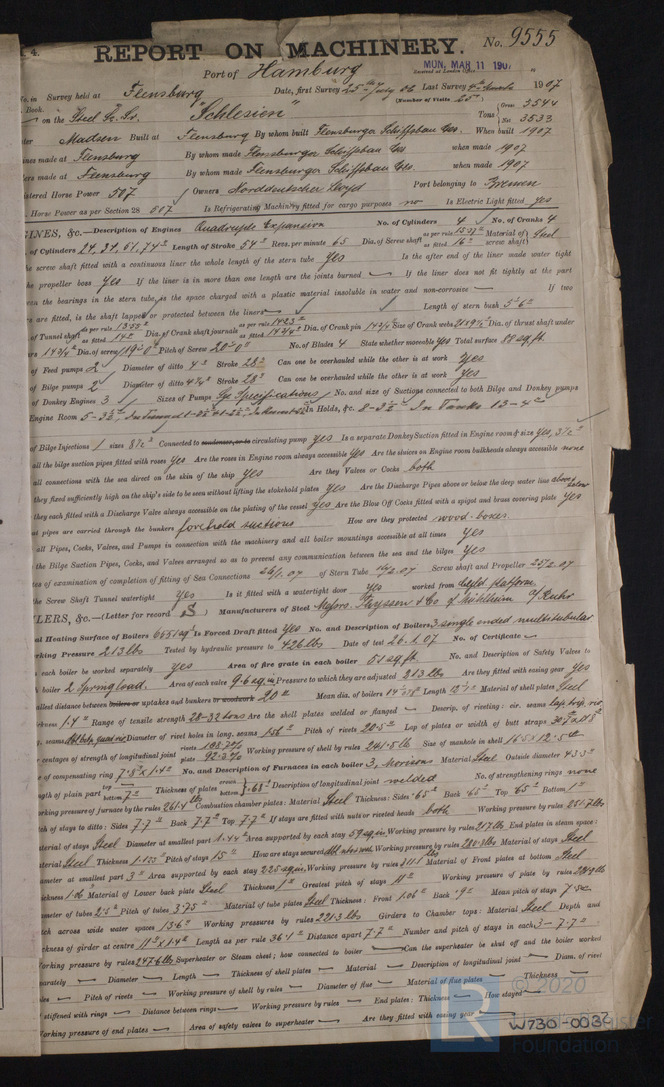 4.
REPORT ON MACHINERY. No. 9555
Port of Hamburg
MON. MAR 11 1907
Received at London Office
No. in Survey held at Flensburg Date, first Survey 25th July 06 Last Survey 4th March 1907
Book. (Number of Visits 25)
on the Steel Sc. Sr. "Schlesien" Tons Gross 5544 Net 3533
Master Madsen Built at Flensburg By whom built Flensburger Schiffsbau Ges. When built 1907
Engines made at Flensburg By whom made Flensburger Schiffsbau Ges when made 1907
Boilers made at Flensburg By whom made Flensburger Schiffsbau Ges. when made 1907
Registered Horse Power 507 Owners Norddeutscher Lloyd Port belonging to Bremen
Horse Power as per Section 28 507 Is Refrigerating Machinery fitted for cargo purposes no Is Electric Light fitted yes
ENGINES, &c.—Description of Engines Quadruple Expansion No. of Cylinders 4 No. of Cranks 4
of Cylinders Length of Stroke 54" Revs. per minute 65 Dia. of Screw shaft as per rule as fitted 16" Material of screw shaft Steel
the screw shaft fitted with a continuous liner the whole length of the stern tube Yes Is the after end of the liner made water tight
the propeller boss Yes If the liner is in more than one length are the joints burned If the liner does not fit tightly at the part
between the bearings in the stern tube, is the space charged with a plastic material insoluble in water and non-corrosive If two
liners are fitted, is the shaft lapped or protected between the liners Length of stern bush 5'6"
of Tunnel shaft as per rule as fitted 14" Dia. of Crank shaft journals as per rule as fitted 14 3/4" Dia. of Crank pin 14 3/4" Size of Crank webs Dia. of thrust shaft under
14 3/4" Dia. of screw 19'0" Pitch of Screw 20'0" No. of Blades 4 State whether moveable Yes Total surface 88 sq. ft.
of Feed pumps 2 Diameter of ditto 4" Stroke 28" Can one be overhauled while the other is at work Yes
of Bilge pumps 2 Diameter of ditto 4 3/4" Stroke 28" Can one be overhauled while the other is at work Yes
of Donkey Engines 3 Sizes of Pumps See Specifications No. and size of Suctions connected to both Bilge and Donkey pumps
Engine Room In Holds, &c. 8-3 1/2" In Tanks 13-4"
of Bilge Injections 1 sizes 8 1/2" Connected to condenser, or to circulating pump yes Is a separate Donkey Suction fitted in Engine room & size Yes, 3 1/2"
all the bilge suction pipes fitted with roses Yes Are the roses in Engine room always accessible Yes Are the sluices on Engine room bulkheads always accessible none
all connections with the sea direct on the skin of the ship Yes Are they Valves or Cocks both
they fixed sufficiently high on the ship's side to be seen without lifting the stokehold plates Yes Are the Discharge Pipes above or below the deep water line above below
they each fitted with a Discharge Valve always accessible on the plating of the vessel Yes Are the Blow Off Cocks fitted with a spigot and brass covering plate Yes
What pipes are carried through the bunkers forehold suctions How are they protected wood-boxes.
all Pipes, Cocks, Valves, and Pumps in connection with the machinery and all boiler mountings accessible at all times Yes
the Bilge Suction Pipes, Cocks, and Valves arranged so as to prevent any communication between the sea and the bilges Yes
Dates of examination of completion of fitting of Sea Connections 26/1.07 of Stern Tube 16/2.07 Screw shaft and Propeller 25/2.07
the Screw Shaft Tunnel watertight Yes Is it fitted with a watertight door Yes worked from platform
BOILERS, &c.—(Letter for record S) Manufacturers of Steel Messrs Thyssen & Co of Mülheim a/Ruhr
Total Heating Surface of Boilers 6651 sq. ft Is Forced Draft fitted Yes No. and Description of Boilers 3 single ended multitubular
Working Pressure 213 lbs Tested by hydraulic pressure to 426 lbs Date of test 26.1.07 No. of Certificate
each boiler be worked separately yes Area of fire grate in each boiler 51 sq. ft No. and Description of Safety Valves to
boiler 2 Spring load. Area of each valve 9.6 sq. in Pressure to which they are adjusted 213 lbs Are they fitted with easing gear Yes
Smallest distance between boilers or uptakes and bunkers or woodwork 20" Mean dia. of boilers Length Material of shell plates Steel
Thickness 1.4" Range of tensile strength 28-32 tons Are the shell plates welded or flanged Descrip. of riveting: cir. seams lap, trip. riv
long. seams Diameter of rivet holes in long. seams 1.56" Pitch of rivets 20.5" Lap of plates or width of butt straps
percentages of strength of longitudinal joint rivets plate 92.3% Working pressure of shell by rules 241.5 lb Size of manhole in shell 16.5 x 12.5"
Size of compensating ring 7.8" x 1.4" No. and Description of Furnaces in each boiler 3, Morisons Material Steel Outside diameter 43.3"
Length of plain part top bottom 7" Thickness of plates crown bottom .68" Description of longitudinal joint welded No. of strengthening rings none
Working pressure of furnace by the rules 261.4 lbs Combustion chamber plates: Material Steel Thickness: Sides .65" Back .65" Top .65" Bottom 1"
Pitch of stays to ditto: Sides 7.7" Back 7.7" Top 7.7" If stays are fitted with nuts or riveted heads both Working pressure by rules 251.7 lbs
Material of stays Steel Diameter at smallest part 1.44" Area supported by each stay 59 sq. in Working pressure by rules 217 lbs End plates in steam space:
Material Steel Thickness Pitch of stays 15" How are stays secured Working pressure by rules Material of stays Steel
Diameter at smallest part 3" Area supported by each stay 225 sq. in. Working pressure by rules Material of Front plates at bottom Steel
Thickness 1.06" Material of Lower back plate Steel Thickness 1" Greatest pitch of stays 11" Working pressure of plate by rules
Diameter of tubes 2.5" Pitch of tubes 3.75" Material of tube plates Steel Thickness: Front 1.06" Back .9" Mean pitch of stays
Pitch across wide water spaces 13.6" Working pressures by rules 221.3 lbs Girders to Chamber tops: Material Steel Depth and
thickness of girder at centre 11" x 1.4" Length as per rule 36.1" Distance apart 7.7" Number and pitch of stays in each 3-7.7"
Working pressure by rules 247.6 lbs Superheater or Steam chest; how connected to boiler Can the superheater be shut off and the boiler worked
separately Diameter Length Thickness of shell plates Material Description of longitudinal joint Diam. of rivet
holes Pitch of rivets Working pressure of shell by rules Diameter of flue Material of flue plates Thickness
If stiffened with rings Distance between rings Working pressure by rules End plates: Thickness How stayed
Working pressure of end plates Area of safety valves to superheater Are they fitted with easing gear
W730-0032
© 2020
LR
Lloyd's Register
Foundation